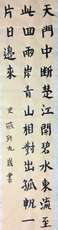 天門中斷楚江開碧水東流至
此回兩岸青山相對出孤帆一
片日邊來
九歲書